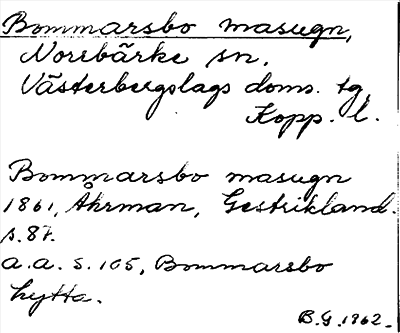 Bommarsbo masugn,
Norrbärke sn.
Västerbergslags doms. tg,
Kopp. l.
Bommarsbo masugn
1861, Åhrman, Gestrikland.
s. 87.
a. a. s. 105, Bommarsbo
hytta.
B. G. 1962.